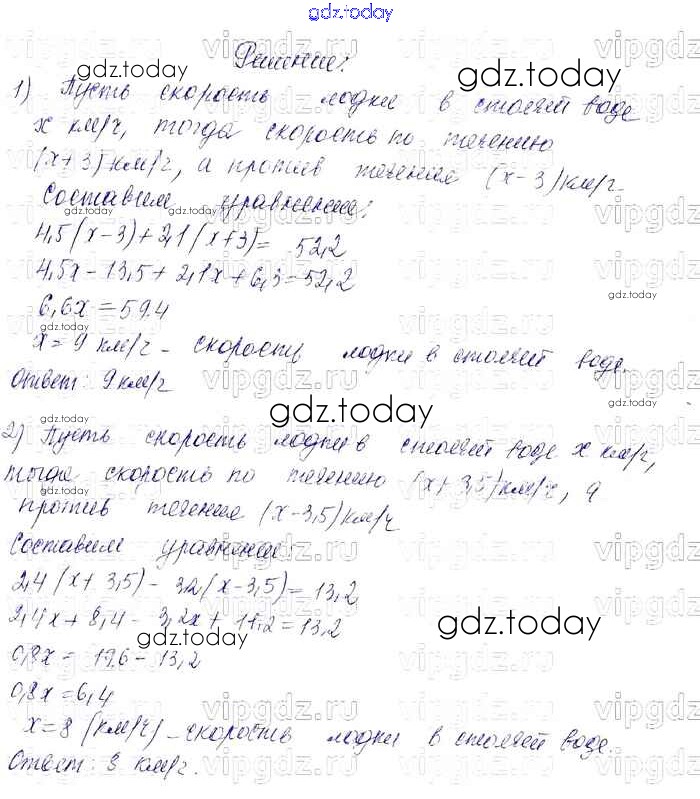 gdz.today
Решение:
1) Пусть скорость лодки в стоячей воде
x км/ч, тогда скорость по течению
(x+3) км/ч, а против течения (x-3) км/ч.
Составим уравнение:
4,5(x-3)+2,1(x+3)= 52,2
4,5x-13,5+2,1x+6,3=52,2
6,6x=59.4
x=9 км/ч - скорость лодки в стоячей воде.
Ответ: 9 км/ч
gdz.today
2) Пусть скорость лодки в стоячей воде x км/ч,
тогда скорость по течению (x+3,5) км/ч, а
против течения (x-3,5) км/ч
Составим уравнение:
2,4(x+3,5)-3,2(x-3,5)=13,2
2,4x+8,4-3,2x+11,2=13,2
0,8x=19,6-13,2
0,8x=6,4
x=8 (км/ч) - скорость лодки в стоячей воде.
Ответ: 8 км/ч.
vipgdz.ru